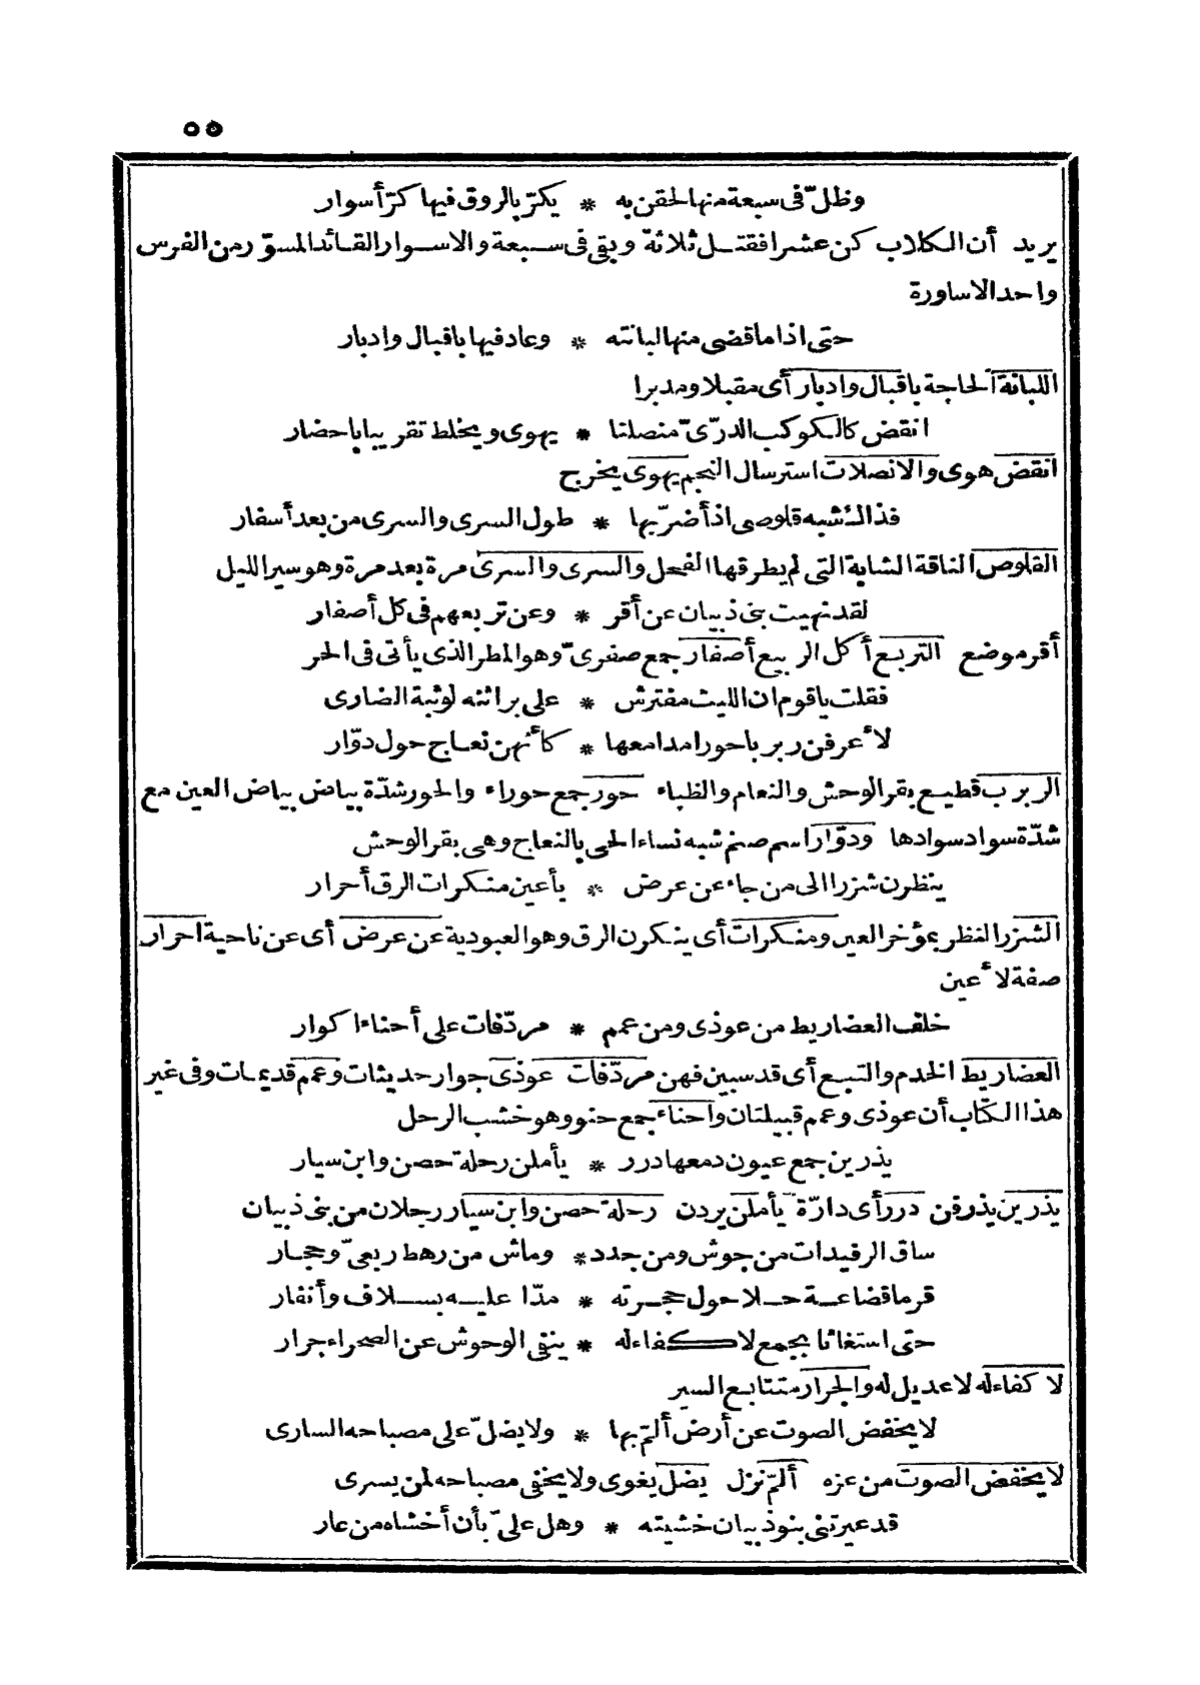 ٥٥
وظلّ فى سبعة منها لحقن به * يكرّ بالروق فيها كرّ أسوار
يريد أن الكلاب كن عشرا فقتل ثلاثة وبقى فى سبعة والاسوار القائد المسوّر من الفرس
واحد الاساورة
حتى اذا ما قضى منها لبانته * وعاد فيها باقبال وادبار
اللبانة الحاجة باقبال وادبار أى مقبلا ومدبرا
انقض كالكوكب الدرّىّ منصلتا * يهوى ويخلط تقريبا باحضار
انقض هوى والانصلات استرسال النجم يهوى يخرج
فذاك شبه قلوصى اذ أضرّ بها * طول السرى والسرى من بعد أسفار
القلوص الناقة الشابة التى لم يطرقها الفحل والسرى والسرى مرة بعد مرة وهو سير الليل
لقد نهيت بنى ذبيان عن أقر * وعن تربعهم فى كل أصفار
أقر موضع التربع أكل الربيع أصفار جمع صفرىّ وهو المطر الذى يأتى فى الحر
فقلت ياقوم ان الليث مفترش * على براثنه لوثبة الضارى
لا أعرفن ربربا حورا مدامعها * كأنهن نعاج حول دوّار
الربرب قطيع بقر الوحش والنعام والظباء حور جمع حوراء والحور شدّة بياض بياض العين مع
شدّة سواد سوادها ودوّار اسم صنم شبه نساء الحى بالنعاج وهى بقر الوحش
ينظرن شزرا الى من جاء عن عرض * بأعين منكرات الرق أحرار
الشزر النظر بمؤخر العين ومنكرات أى ينكرن الرق وهو العبودية عن عرض أى عن ناحية احرار
صفة لأعين
خلف العضاريط من عوذى ومن عمم * مردّفات على أحناء اكوار
العضاريط الخدم والتبع أى قد سبين فهن مردّفات عوذى جوار حديثات وعمم قديمات وفى غير
هذا الكتاب أن عوذى وعمم قبيلتان واحناء جمع حنو وهو خشب الرحل
يذرين جمع عيون دمعها درر * يأملن رحلة حصن وابن سيار
يذرين يذرفن درر أى دارّة يأملن يردن رحلة حصن وابن سيار رجلان من بنى ذبيان
ساق الرفيدات من جوش ومن جدد * وماش من رهط ربعىّ وحجار
قرما قضاعة حلا حول حجرته * مدّا عليه بسلاف وأنفار
حتى استغاثا بجمع لا كفاء له * ينفى الوحوش عن الصحراء جرار
لا كفاء له لا عديل له والجرار متتابع السير
لا يخفض الصوت عن أرض ألمّ بها * ولا يضلّ على مصباحه السارى
لا يخفض الصوت من عزه ألمّ نزل يضل يغوى ولا يخفى مصباحه لمن يسرى
قد عيرتنى بنو ذبيان خشيته * وهل علىّ بأن أخشاه من عار